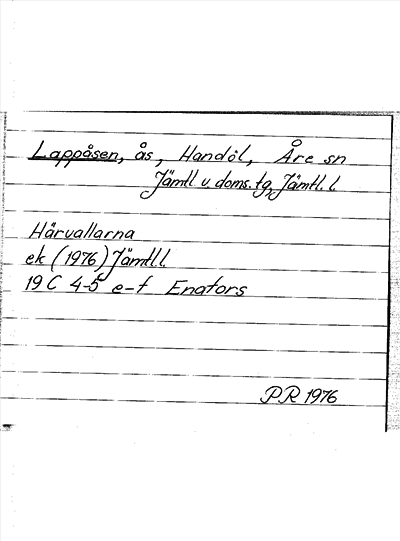 Lappåsen, ås, Handöl, Åre sn
Jämtl v. doms. tg, Jämtl. l.
Härvallarna
ek (1976) Jämtl l.
19 C 4-5 e-f Enafors
PR 1976